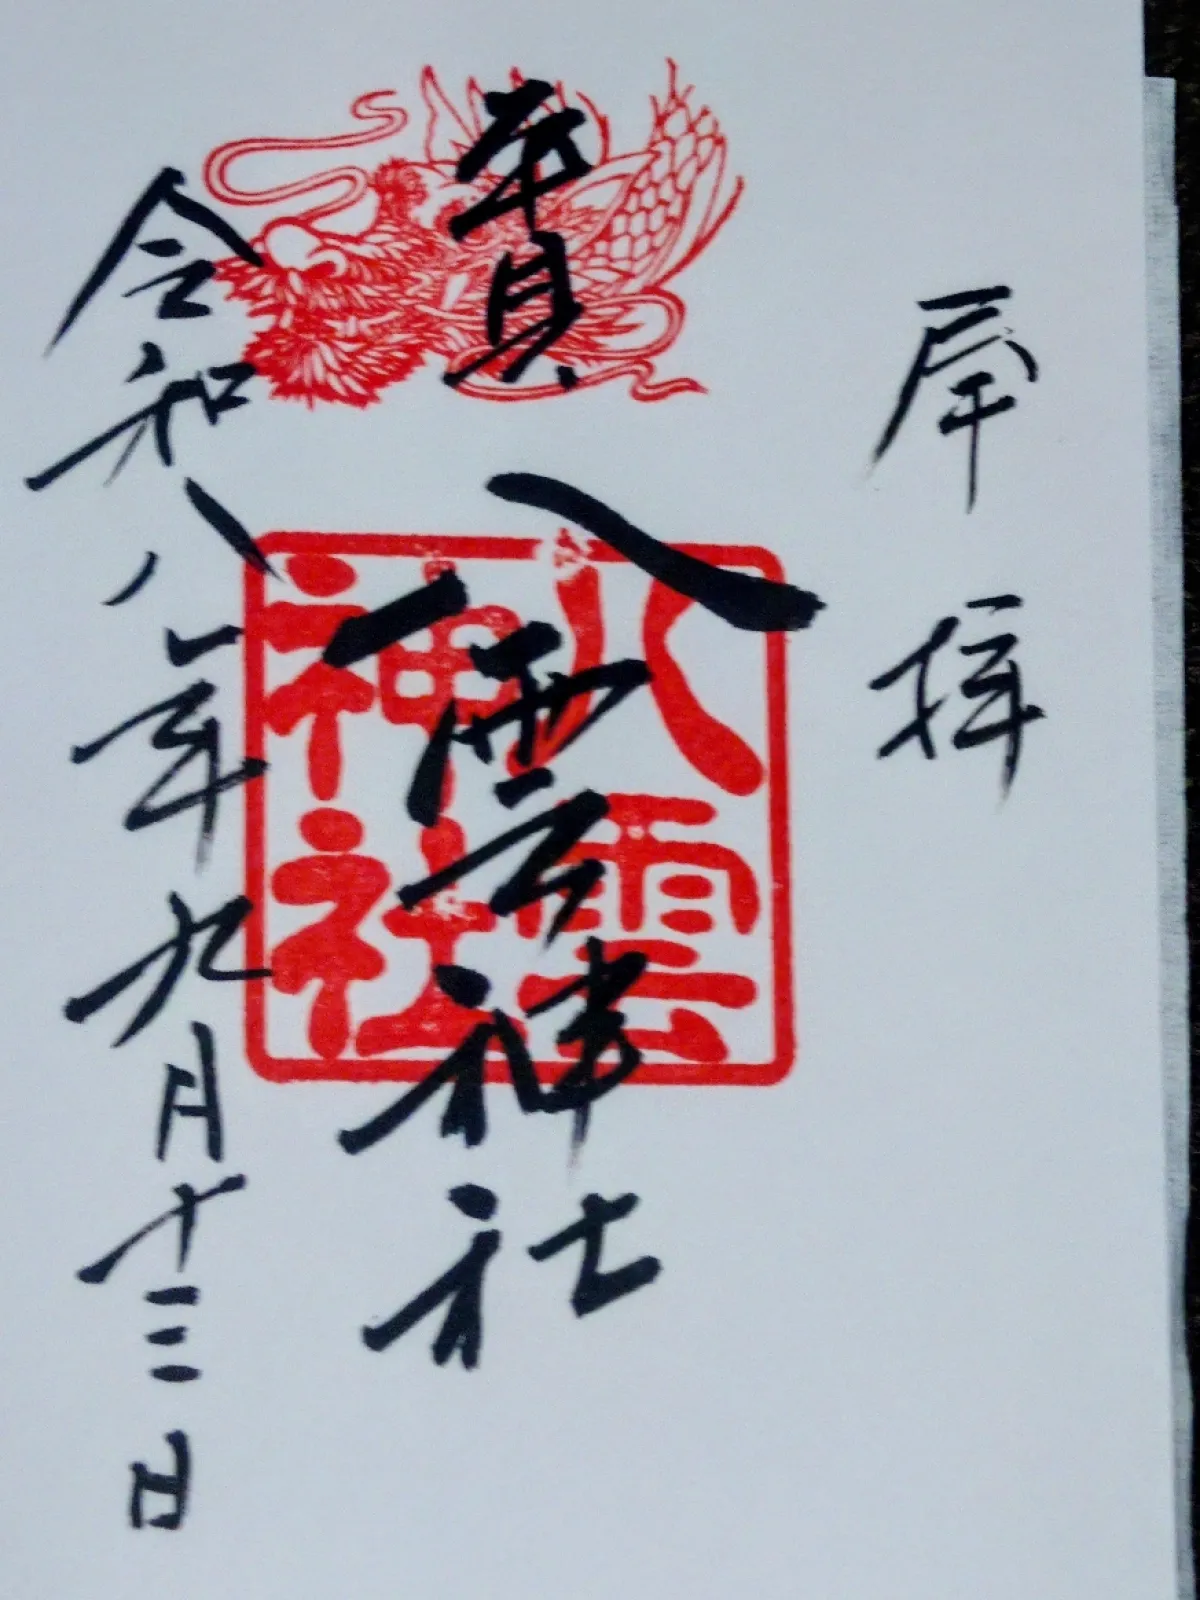 奉拝
八雲神社
八雲
神社
令和八年九月十三日